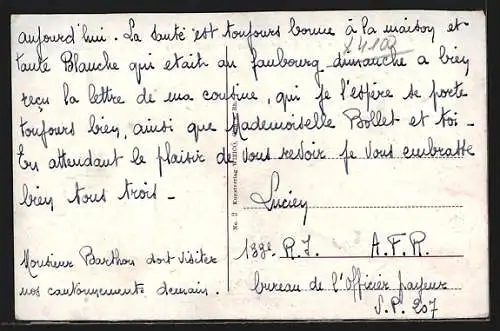 aujourd'hui. La santé est toujours bonne à la maison et
tante Blanche qui etait au faubourg dimanche a bien
reçu la lettre de ma cousine, qui je l'espère se porte
toujours bien, ainsi que Mademoiselle Bollet et toi.
En attendant le plaisir de vous revoir je vous embrasse
bien tous trois.
Lucien
133e R.I. A.F.R.
bureau de l'Officier payeur
S.P. 207
Monsieur Barthou doit visiter
nos cantonnements demain.
No. 2 Kunstverlag